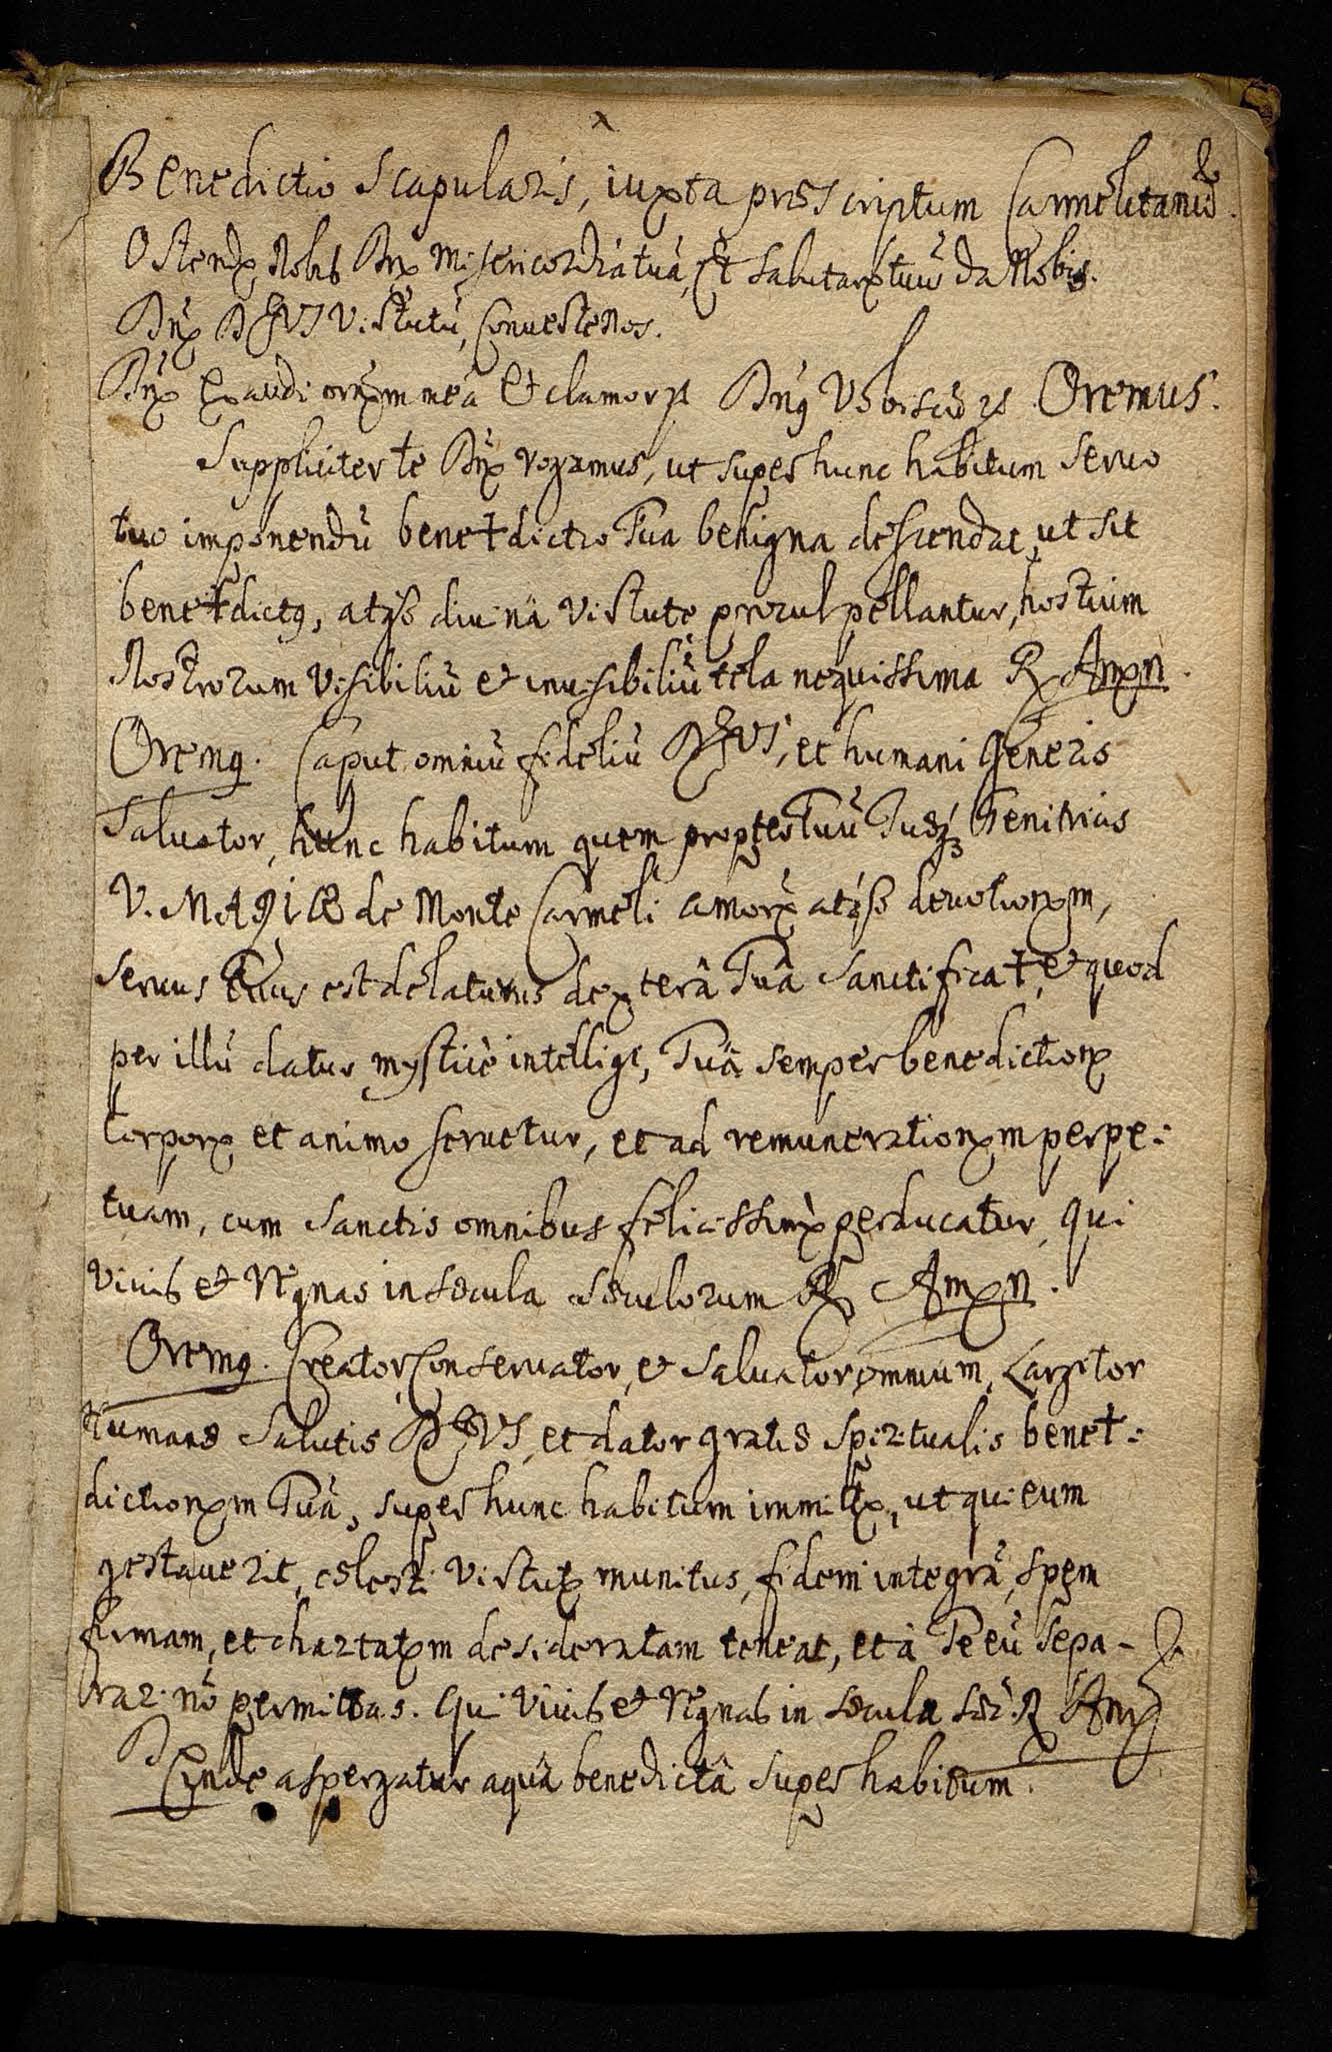 Benedictio Scapularis, iuxta præscriptum Carmelitanũ.
Ostende Nobis Dñe Misericordiã tuã, Et Salutare tuũ da Nobis.
Dñe DEUS Virtutũ, Converte nos.
Dñe Exaudi orõnem meã Et clamor Dñus Vobiscũ Oremus.
Suppliciter te Dñe rogamus, ut super hunc habitum servo
tuo imponendũ bene†dictio Tua benigna descendat, ut sit
bene†dictus, atq̃ divinâ Virtute procul pellantur, hostium
Nostrorum Visibiliũ et invisibiliũ tela nequissima ℟ Amen.
Oremus. Caput omniũ fideliũ DEUS, et humani Generis
Salvator, hunc habitum quem propter Tuũ Tuæq̃ Genitricis
V. MARIÆ de Monte Carmeli amore atq̃ devotionem,
servus Tuus est delaturus dexterâ Tuâ Sanctifica†, et quod
per illũ datur mysticè intelligi, Tuâ semper benedictione
corpore et animo servetur, et ad remunerationem perpe-
tuam, cum Sanctis omnibus felicissimè perducatur, qui
Vivis et Regnas in sæcula sæculorum ℟ Amen.
Oremus. Creator, Conservator, et Salvator omnium, Largitor
Humanæ Salutis DEUS, et dator gratiæ Spiritualis bene†-
dictionem Tuã, super hunc habitum immitte, ut qui eum
gestaverit, cœlesti Virtute munitus, fidem integrã, spem
firmam, et charitatem desideratam teneat, et à Te eũ sepa-
rari nõ permittas. Qui Vivis et Regnas in sæcula sæc. ℟ Amẽ
Deinde aspergatur aquâ benedictâ super habitum.